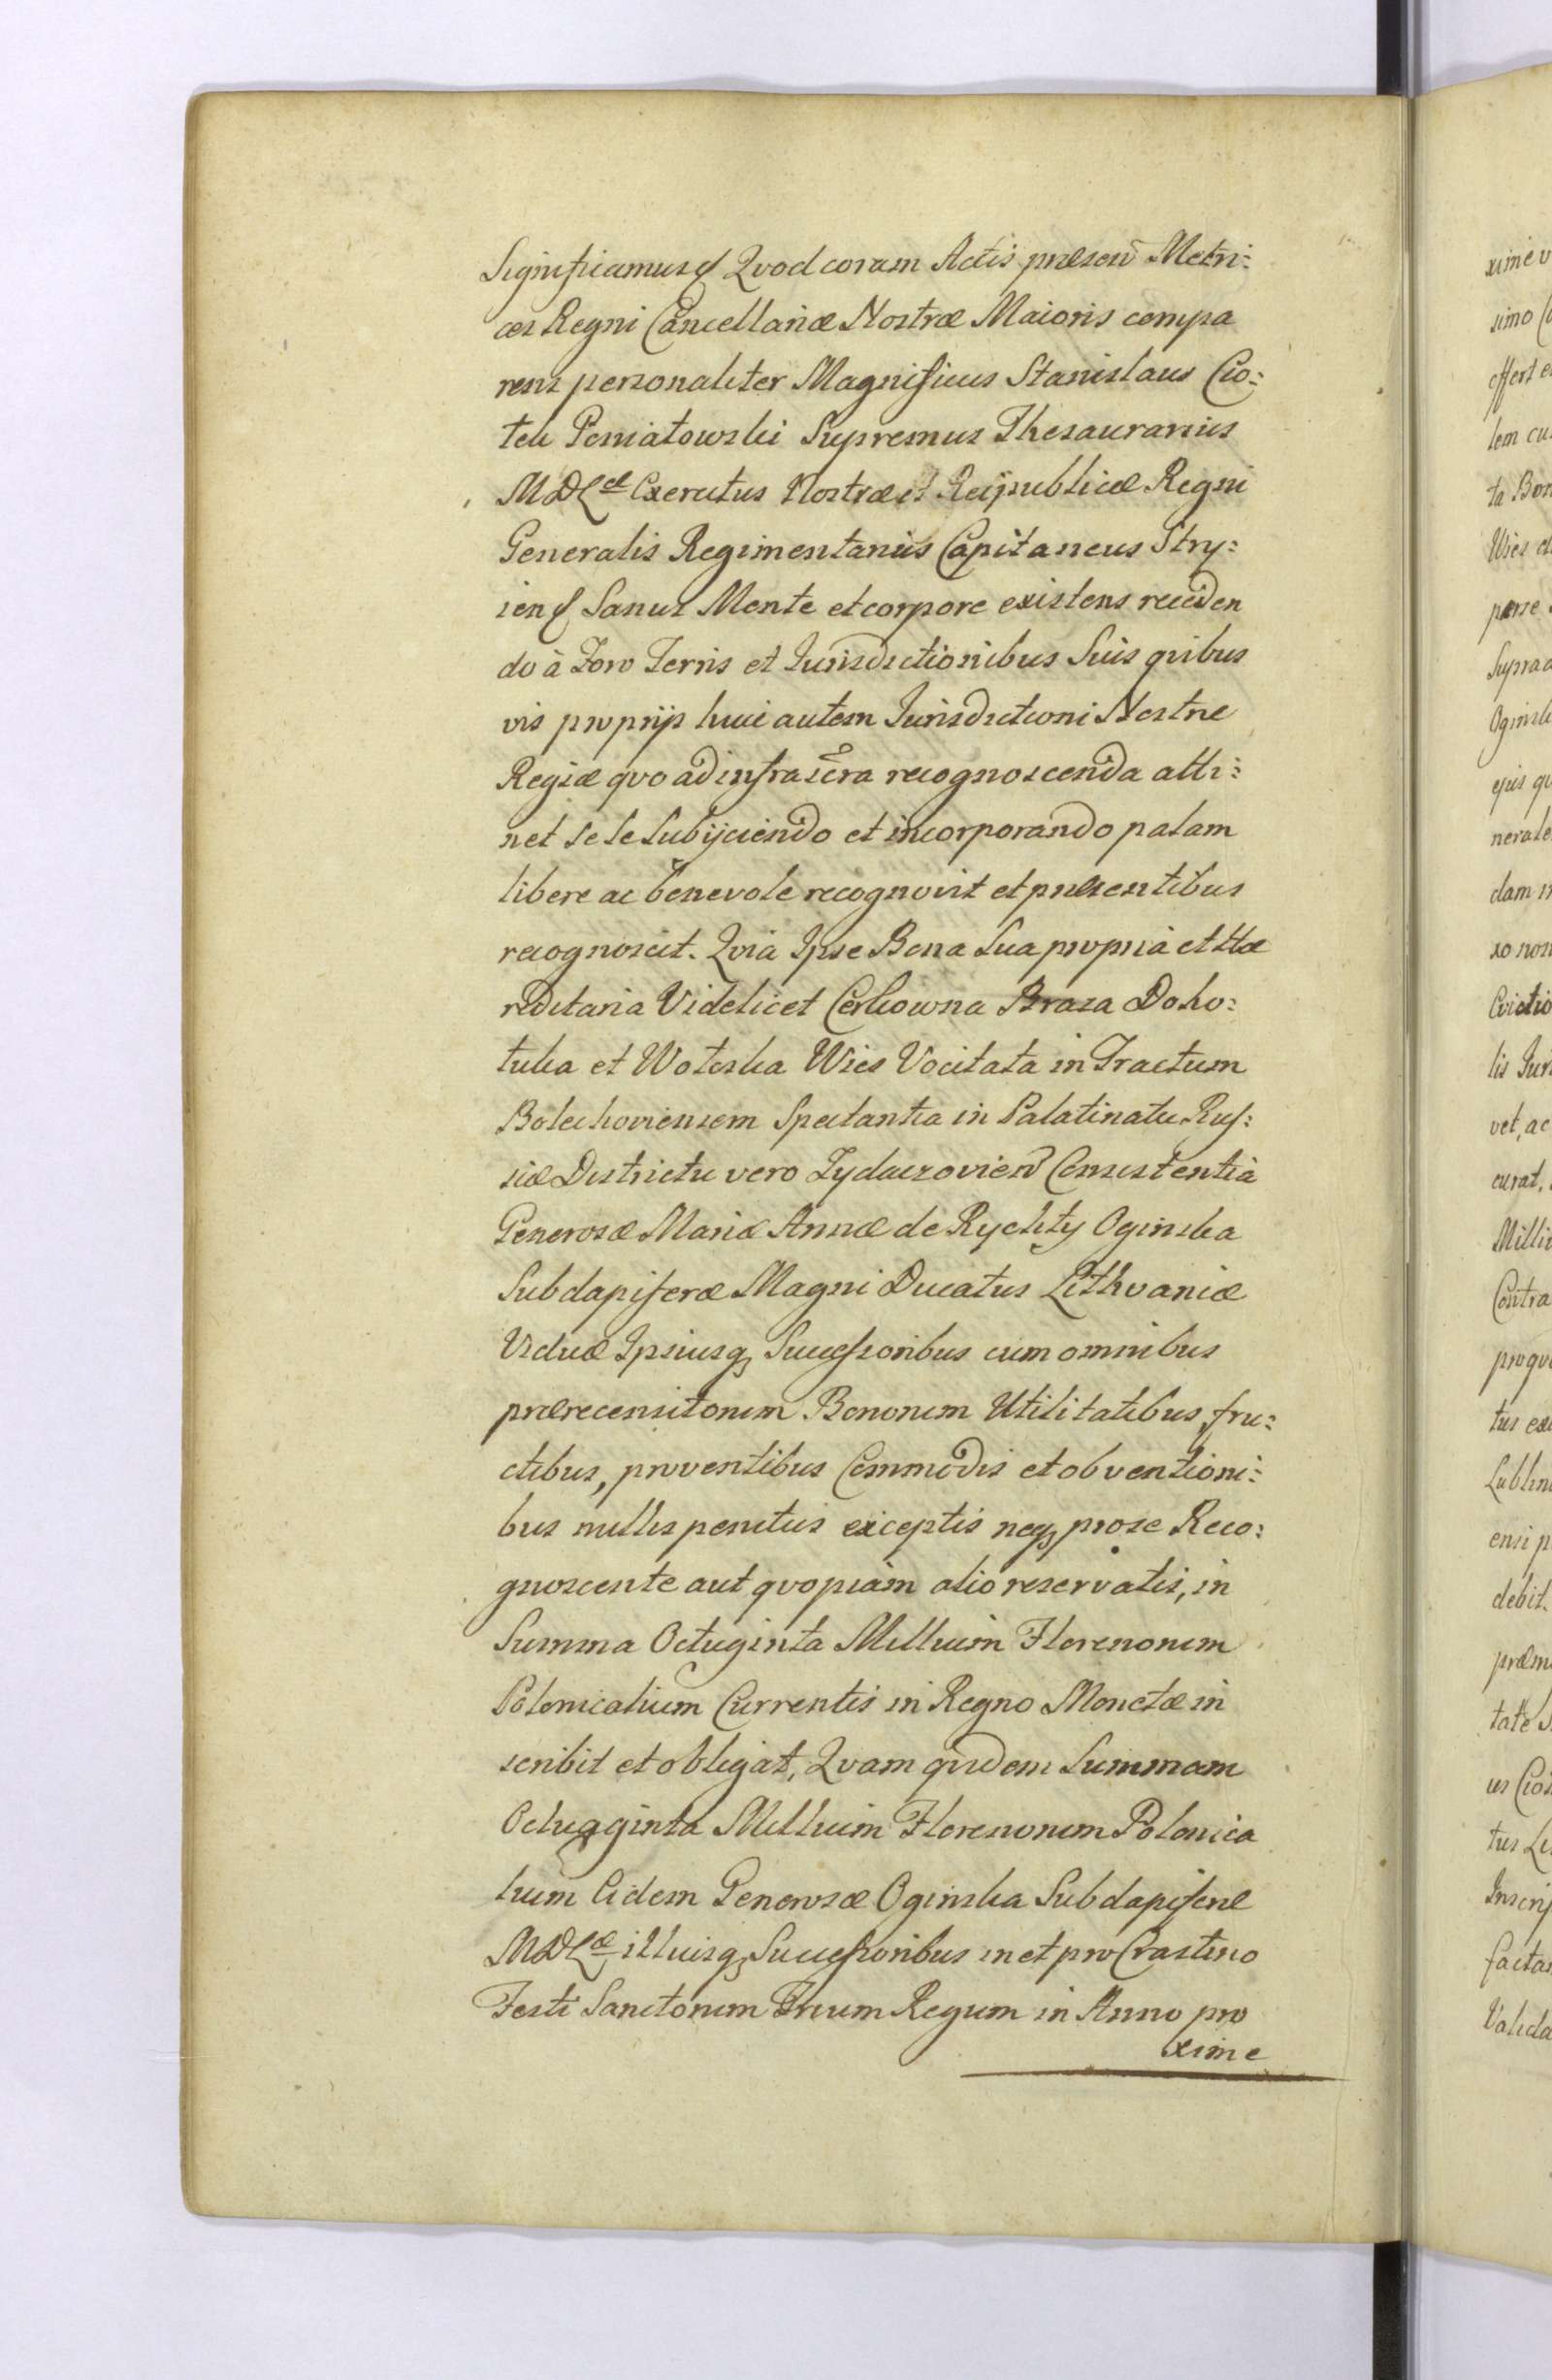 Significamus Qvod coram Actis præsen Metri:
ces Regni Cancellariæ Nostræ Maioris compa
rens personaliter Magnificus Stanislaus Cio:
tek Poniatowski Supremus Thesaurarius
MDL Exercitus Nostræ et Reipublicæ Regni
Generalis Regimentarius Capitaneus Stry:
ien Sanus Mente et corpore existens receden
do à Foro Terris et Jurisdictionibus Suis quibus
vis proprijs huic autem Jurisdictioni Nostræ
Regiæ qvo ad infrascra recognoscenda atti:
net se se Subijciendo et incorporando palam
libere ac benevole recognovit et præsentibus
recognoscit. Qvia Ipse Bona Sua propria et Hæ
reditaria Videlicet Cerkowna Braza Doho:
tuka et Woloska Wies Vocitata in Tractum
Bolechoviensem Spectantia in Palatinatu Rus:
siæ Districtu vero Zydaczovien Consistentia
Generosæ Mariæ Annæ de Rychty Oginska
Subdapiferæ Magni Ducatus Lithvaniæ
Viduæ Ipsiusq Successoribus cum omnibus
prærecensitorum Bonorum Utilitatibus, fru:
ctibus, proventibus Commodis et obventioni:
bus nullis penitus exceptis neq pro se Reco:
gnoscente aut qvopiam alio reservatis, in
Summa Octuginta Millium Florenorum
Polonicalium Currentis in Regno Monetæ in
scribit et obligat, Qvam qvidem Summam
Octuaginta Millium Florenorum Polonica
lium Eidem Generosæ Oginska Subdapiferæ
MDL illiusq Successoribus in et pro Crastino
Festi Sanctorum Trium Regum in Anno pro
xime